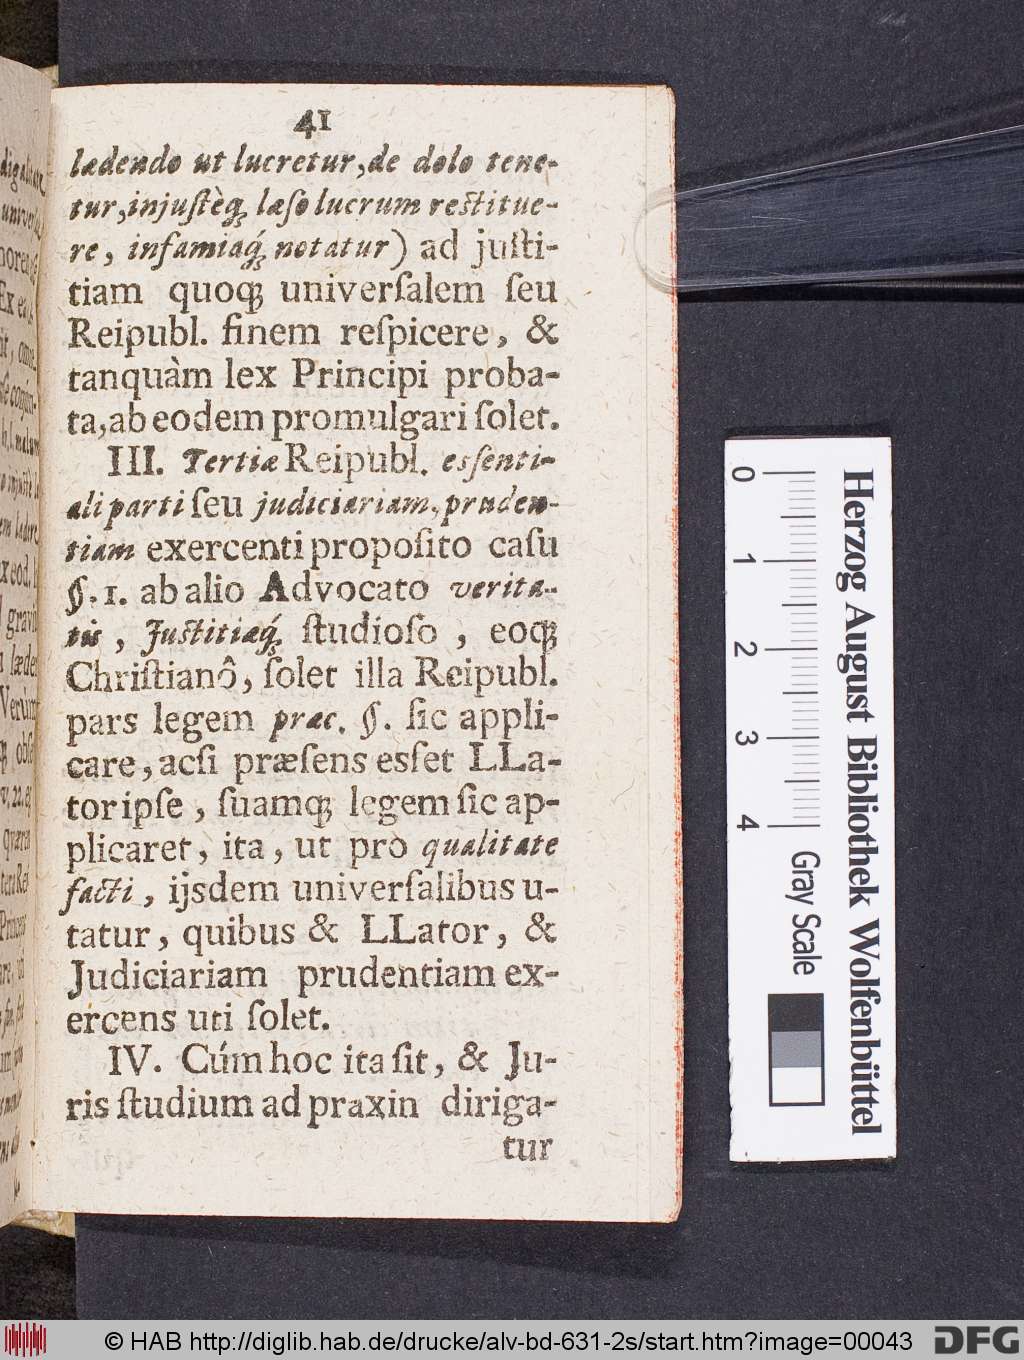 41
lædendo ut lucretur, de dolo tene-
tur, injustèq́; læso lucrum restitue-
re, infamiaq́; notatur) ad justi-
tiam quoq; universalem seu
Reipubl. finem respicere, &
tanquàm lex Principi proba-
ta, ab eodem promulgari solet.
III. Tertiæ Reipubl. essenti-
ali parti seu judiciariam, pruden-
tiam exercenti proposito casu
§. 1. ab alio Advocato verita-
tis, Justitiæq́; studioso, eoq;
Christianô, solet illa Reipubl.
pars legem præc. §. sic appli-
care, acsi præsens esset LLa-
tor ipse, suamq; legem sic ap-
plicaret, ita, ut pro qualitate
facti, ijsdem universalibus u-
tatur, quibus & LLator, &
Judiciariam prudentiam ex-
ercens uti solet.
IV. Cúm hoc ita sit, & Ju-
ris studium ad praxin diriga-
tur
0 1 2 3 4 Gray Scale
Herzog August Bibliothek Wolfenbüttel
© HAB http://diglib.hab.de/drucke/alv-bd-631-2s/start.htm?image=00043
DFG